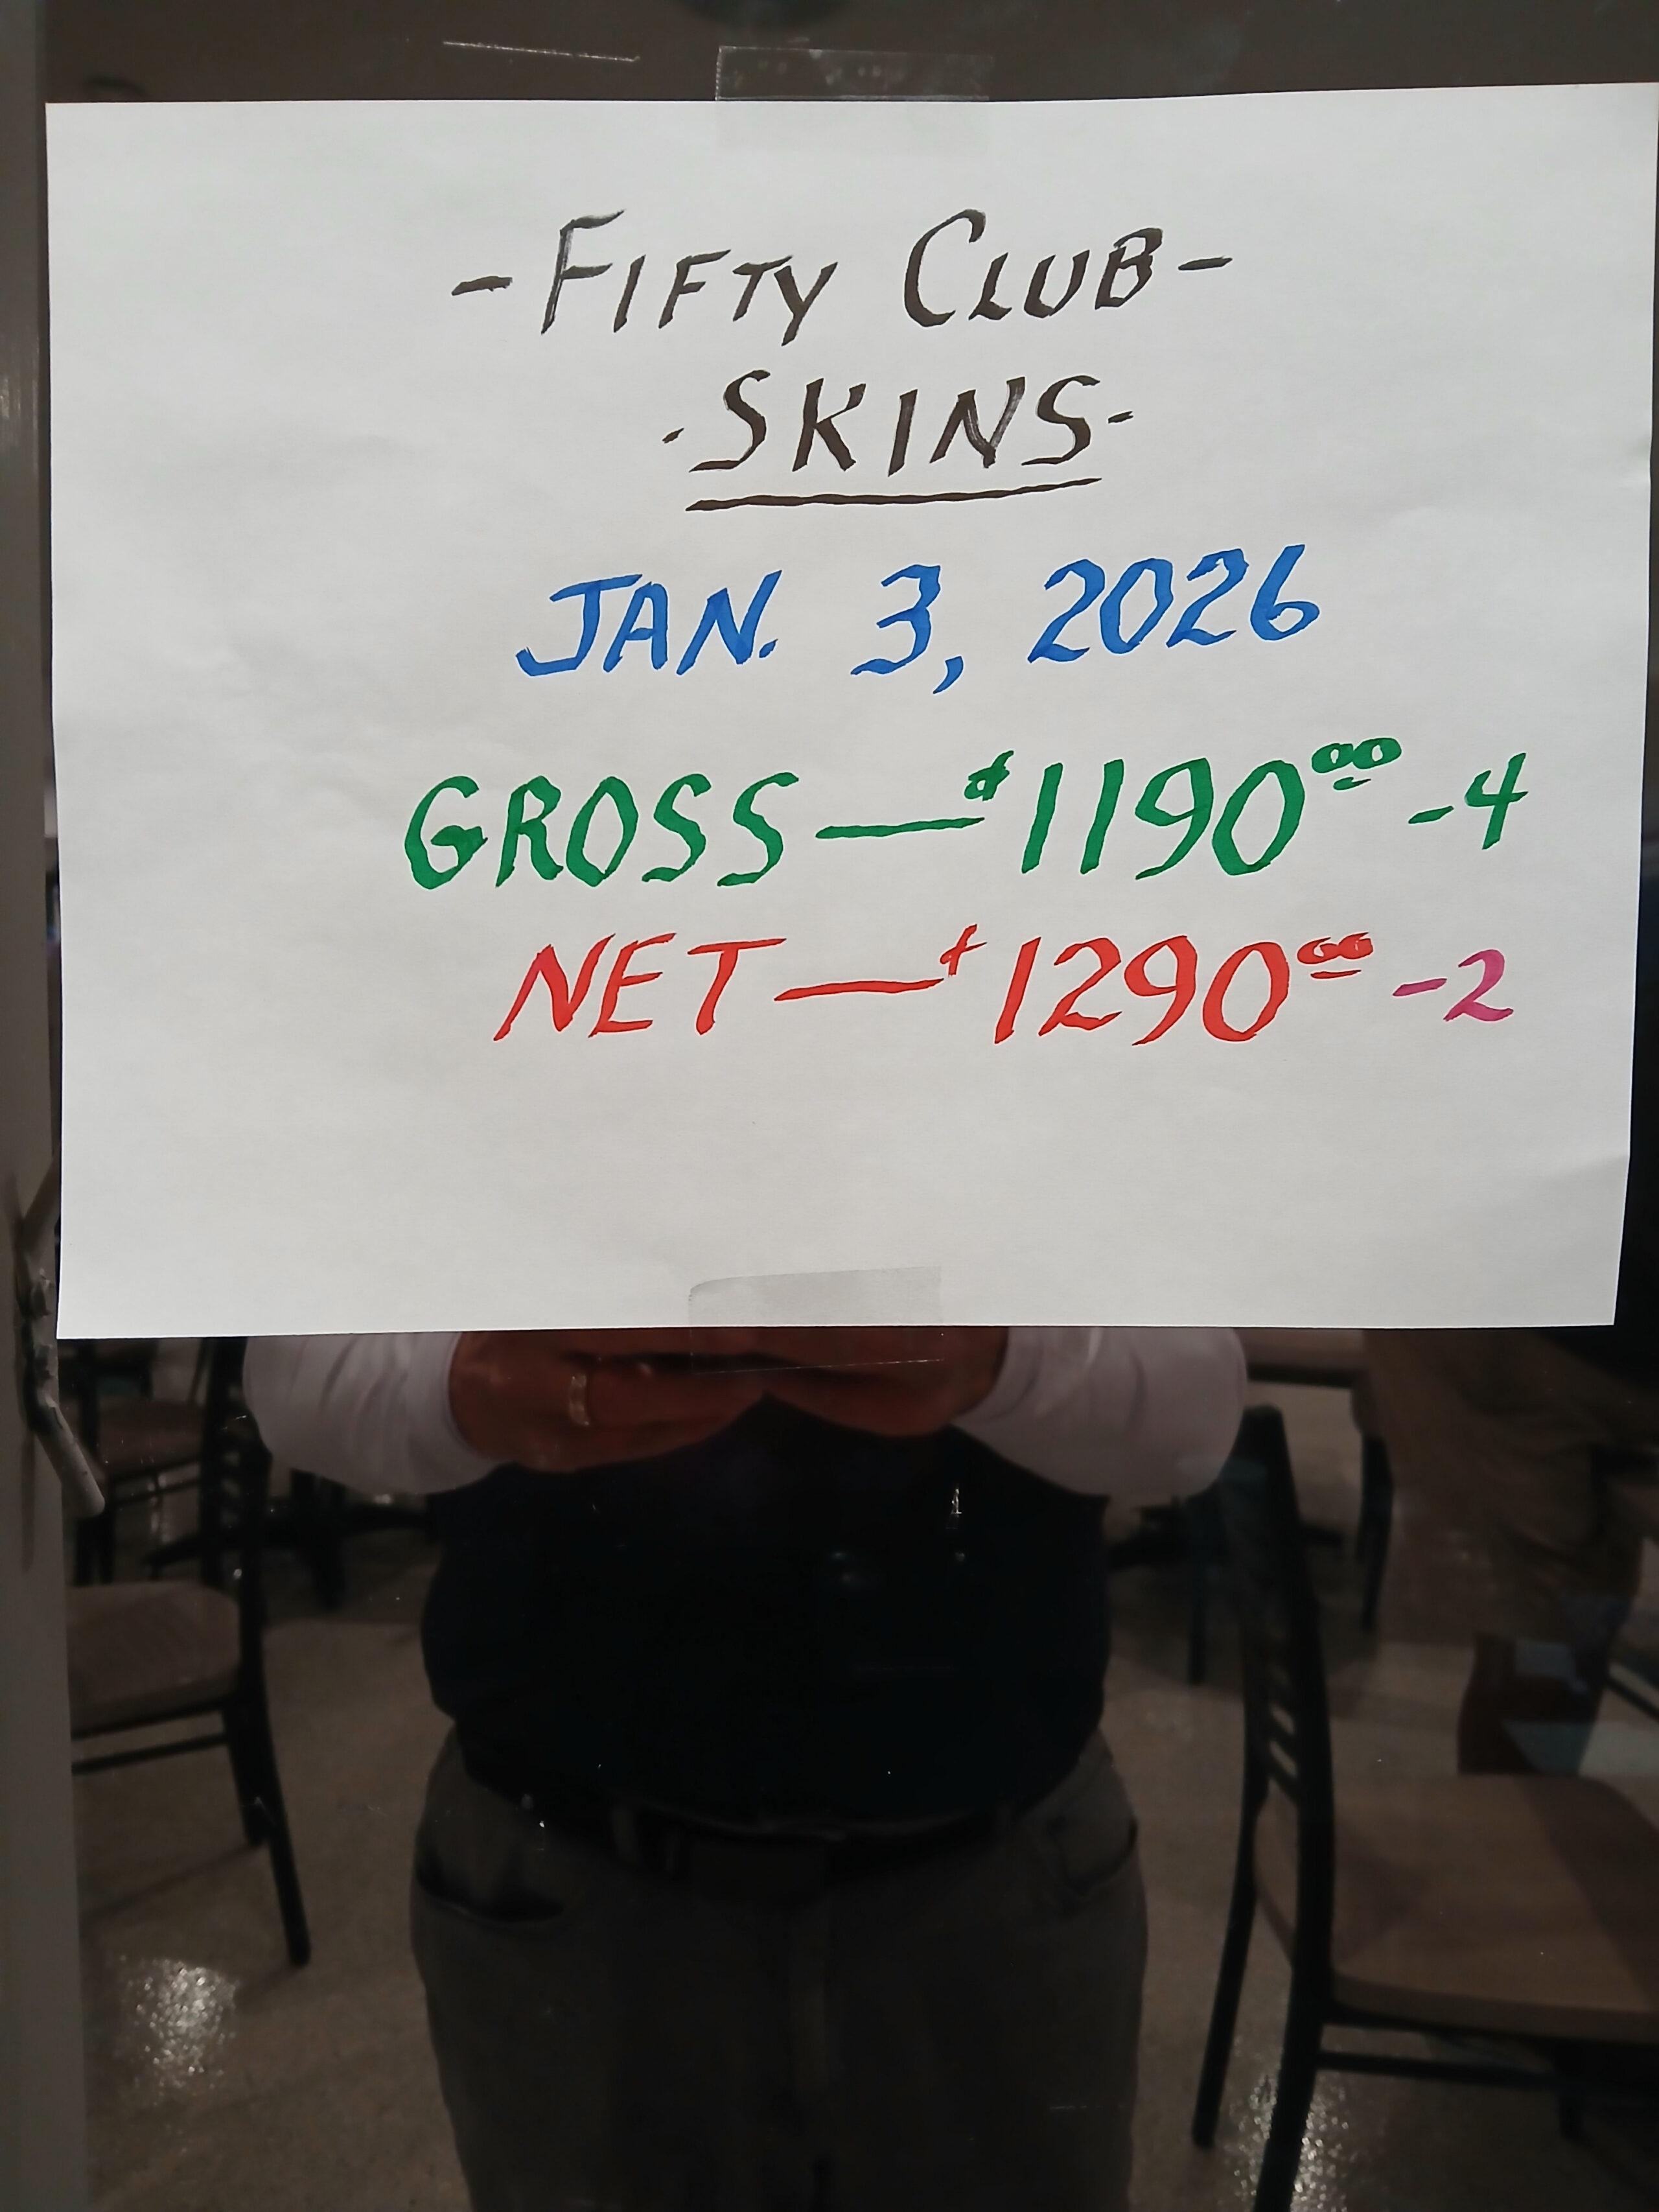 -FIFTY CLUB-
-SKINS-
JAN. 3, 2026
GROSS—$1190⁰⁰-4
NET—$1290⁰⁰-2